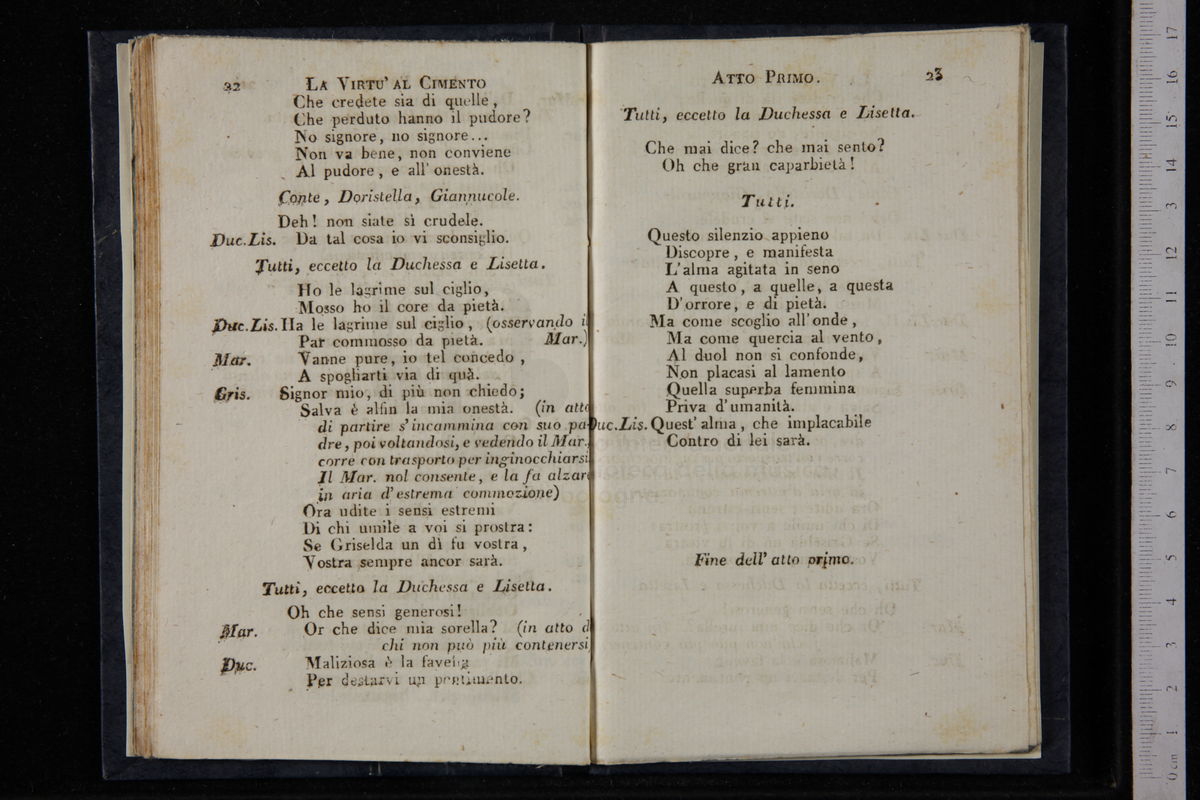 22 LA VIRTU' AL CIMENTO
Che credete sia di quelle,
Che perduto hanno il pudore?
No signore, no signore...
Non va bene, non conviene
Al pudore, e all' onestà.
Conte, Doristella, Giannucole.
Deh! non siate sì crudele.
Duc.Lis. Da tal cosa io vi sconsiglio.
Tutti, eccetto la Duchessa e Lisetta.
Ho le lagrime sul ciglio,
Mosso ho il core da pietà.
Duc.Lis. Ha le lagrime sul ciglio, (osservando il
Par commosso da pietà. Mar.)
Mar. Vanne pure, io tel concedo,
A spogliarti via di quà.
Gris. Signor mio, di più non chiedo;
Salva è alfin la mia onestà. (in atto
di partire s'incammina con suo pa-
dre, poi voltandosi, e vedendo il Mar.,
corre con trasporto per inginocchiarsi
Il Mar. nol consente, e la fa alzare
in aria d'estrema commozione)
Ora udite i sensi estremi
Di chi umile a voi si prostra:
Se Griselda un dì fu vostra,
Vostra sempre ancor sarà.
Tutti, eccetto la Duchessa e Lisetta.
Oh che sensi generosi!
Mar. Or che dice mia sorella? (in atto d
chi non può più contenersi
Duc. Maliziosa è la favella
Per destarvi un pentimento.
ATTO PRIMO. 23
Tutti, eccetto la Duchessa e Lisetta.
Che mai dice? che mai sento?
Oh che gran caparbietà!
Tutti.
Questo silenzio appieno
Discopre, e manifesta
L'alma agitata in seno
A questo, a quelle, a questa
D'orrore, e di pietà.
Ma come scoglio all'onde,
Ma come quercia al vento,
Al duol non si confonde,
Non placasi al lamento
Quella superba femmina
Priva d'umanità.
Duc.Lis. Quest' alma, che implacabile
Contro di lei sarà.
Fine dell' atto primo.